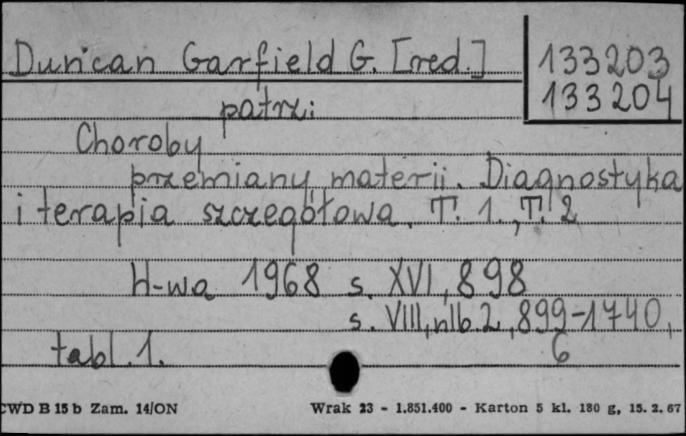 Duncan Garfield G. [red.]
133203
133204
patrz:
Choroby
przemiany materii. Diagnostyka
i terapia szczegółowa. T. 1., T. 2
W-wa 1968 s. XVI, 898
s. VIII, nlb. 2, 899-1740,
6
tabl. 1.
CWD B 15 b Zam. 14/ON
Wrak 23 - 1.851.400 - Karton 5 kl. 180 g, 15. 2. 67